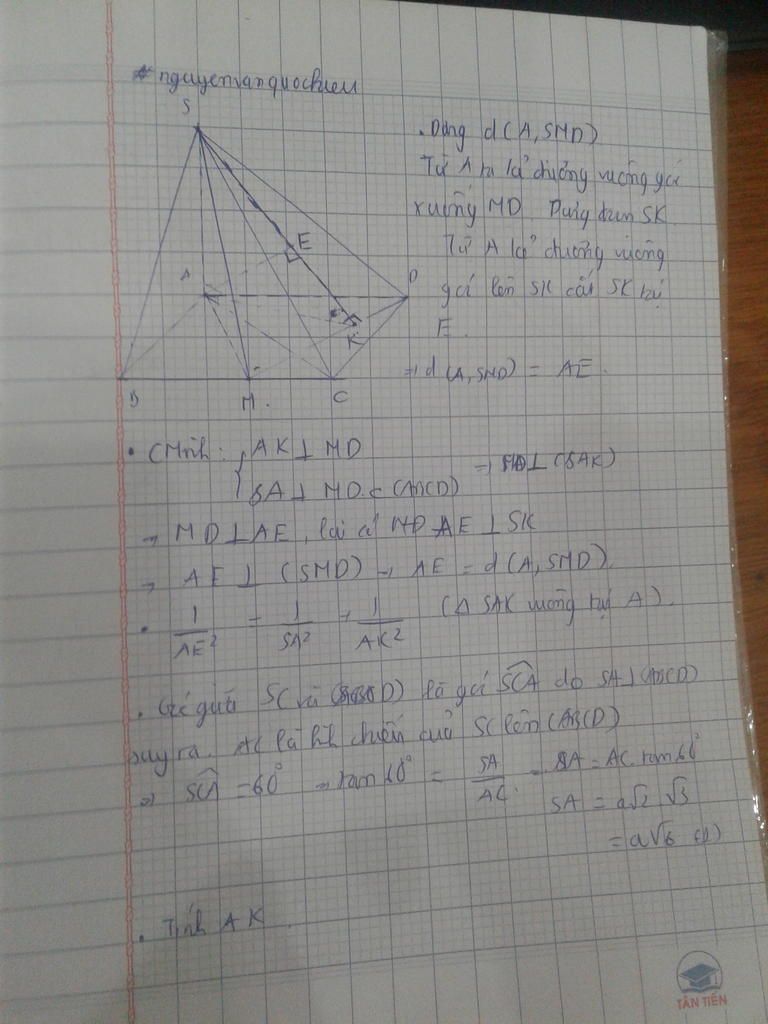 # nguyenvanquochieu
S
. Dựng d(A, SMD)
Từ A kẻ đường vuông góc
xuống MD. Dựng SK
Từ A kẻ đường vuông
góc lên SK cắt SK tại
E.
E
A
D
K
⇒ d(A, SMD) = AE.
B M. C
• CMinh: { AK ⊥ MD
SA ⊥ MD ⊂ (ABCD) ⇒ MD ⊥ (SAK)
→ MD ⊥ AE, lại có AE ⊥ SK
→ AE ⊥ (SMD) → AE = d(A, SMD).
• 1/AE² = 1/SA² + 1/AK² (Δ SAK vuông tại A).
. Góc giữa SC và D) là góc SCA do SA ⊥ (ABCD)
suy ra. AC là hình chiếu của SC lên (ABCD)
⇒ SCA = 60° → tan 60° = SA/AC → SA = AC. tan 60°
SA = a√2. √3
= a√6 (1)
. Tính AK
TÂN TIẾN